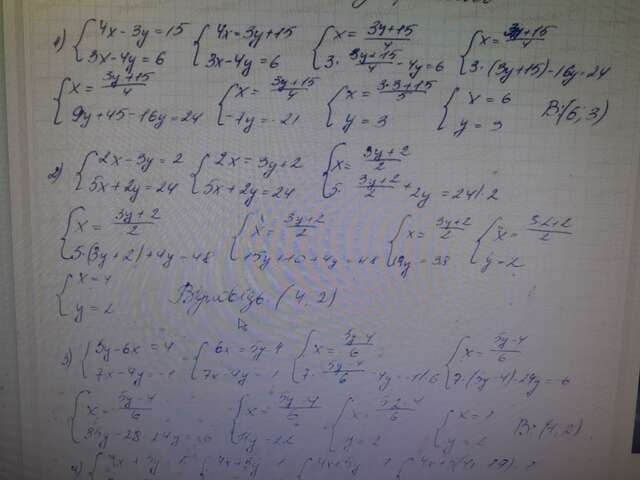 1) { 4x - 3y = 15 3x - 4y = 6 { 4x = 3y + 15 3x - 4y = 6 { x = (3y+15)/4 3 · (3y+15)/4 - 4y = 6 { x = (3y+15)/4 3 · (3y+15) - 16y = 24
{ x = (3y+15)/4 9y + 45 - 16y = 24 { x = (3y+15)/4 -7y = -21 { y = 3 { x = 6 y = 3 B: (6; 3)
2) { 2x - 3y = 2 5x + 2y = 24 { 2x = 3y + 2 5x + 2y = 24 { x = (3y+2)/2 5 · (3y+2)/2 + 2y = 24 /·2
{ x = (3y+2)/2 5 · (3y+2) + 4y = 48 { x = (3y+2)/2 15y + 10 + 4y = 48 { x = (3y+2)/2 19y = 38 { x = (3·2+2)/2 y = 2
{ x = 4 y = 2 (4, 2)
3) { 5y - 6x = 4 7x - 4y = -1 { 6x = 5y - 4 7x - 4y = -1 { x = (5y-4)/6 7 · (5y-4)/6 - 4y = -1 /·6 { x = (5y-4)/6 7 · (5y-4) - 24y = -6
{ x = (5y-4)/6 35y - 28 - 24y = -6 { x = (5y-4)/6 11y = 22 { x = (5·2-4)/6 y = 2 { x = 1 y = 2 B: (1, 2)